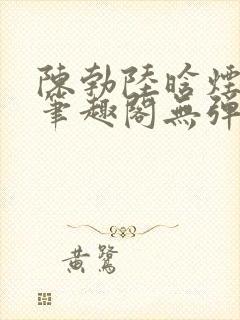 陳勃陸晗煙
筆趣閣無彈
黃鷺